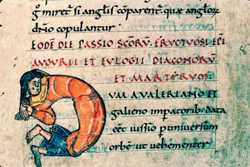 miret si angłis coparent quae anglor
dnio copulantur
EODE DIE PASSIO SCORU FRUCTUOSI EPI
AUGURII ET EULOGII DIACONORU
ET MARTYRUM
UA AVALERIANO ET
galieno impatorib; data
eet iussio p universum
orbe ut vehementer